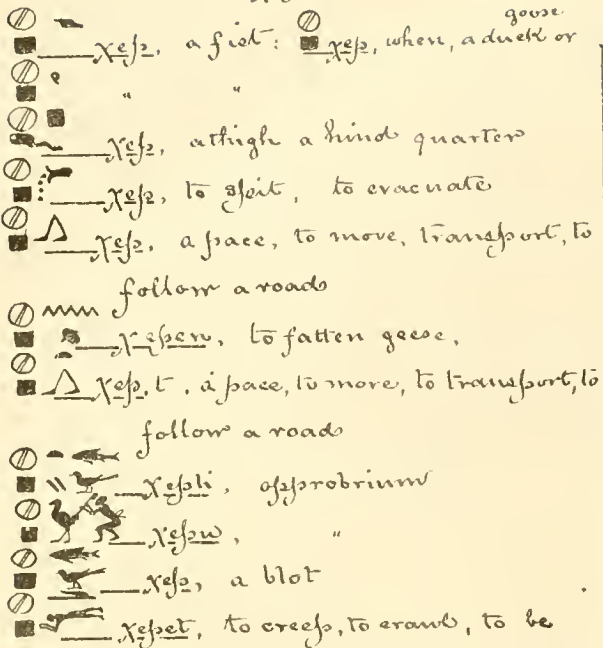 goose
χep, a fist: χep, when, a duck or
" "
χep, a thigh a hind quarter
χep, to spit, to evacuate
χep, a pace, to move, transport, to
follow a roads
χepen, to fatten geese,
χep.t, a pace, to move, to transport, to
follow a road
χepti, opprobrium
χepu, "
χep, a blot
χepet, to creep, to crawl, to be